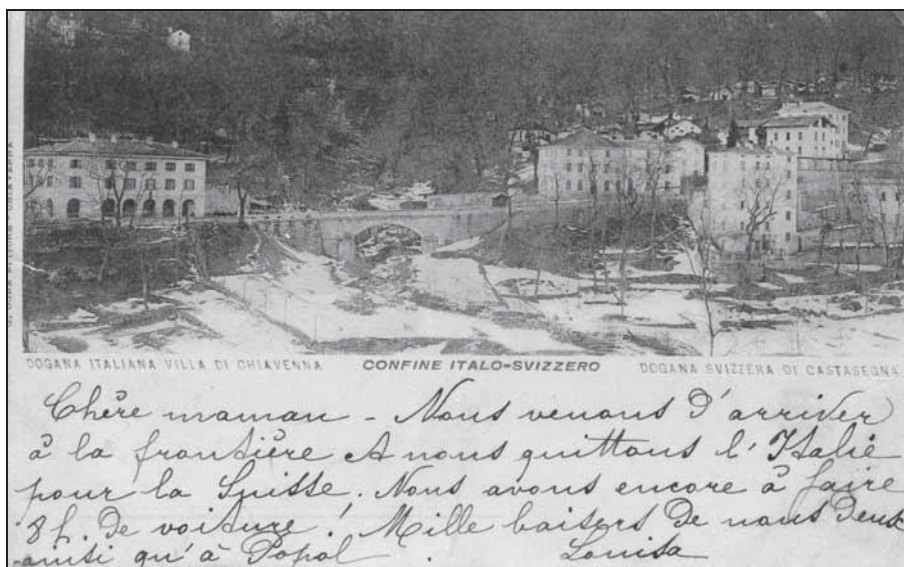 DOGANA ITALIANA VILLA DI CHIAVENNA CONFINE ITALO-SVIZZERO DOGANA SVIZZERA DI CASTASEGNA
Chère maman - Nous venons d'arriver
à la frontière & nous quittons l'Italie
pour la Suisse. Nous avons encore à faire
8h. de voiture! Mille baisers de nous deux
ainsi qu'à Popol. Louisa